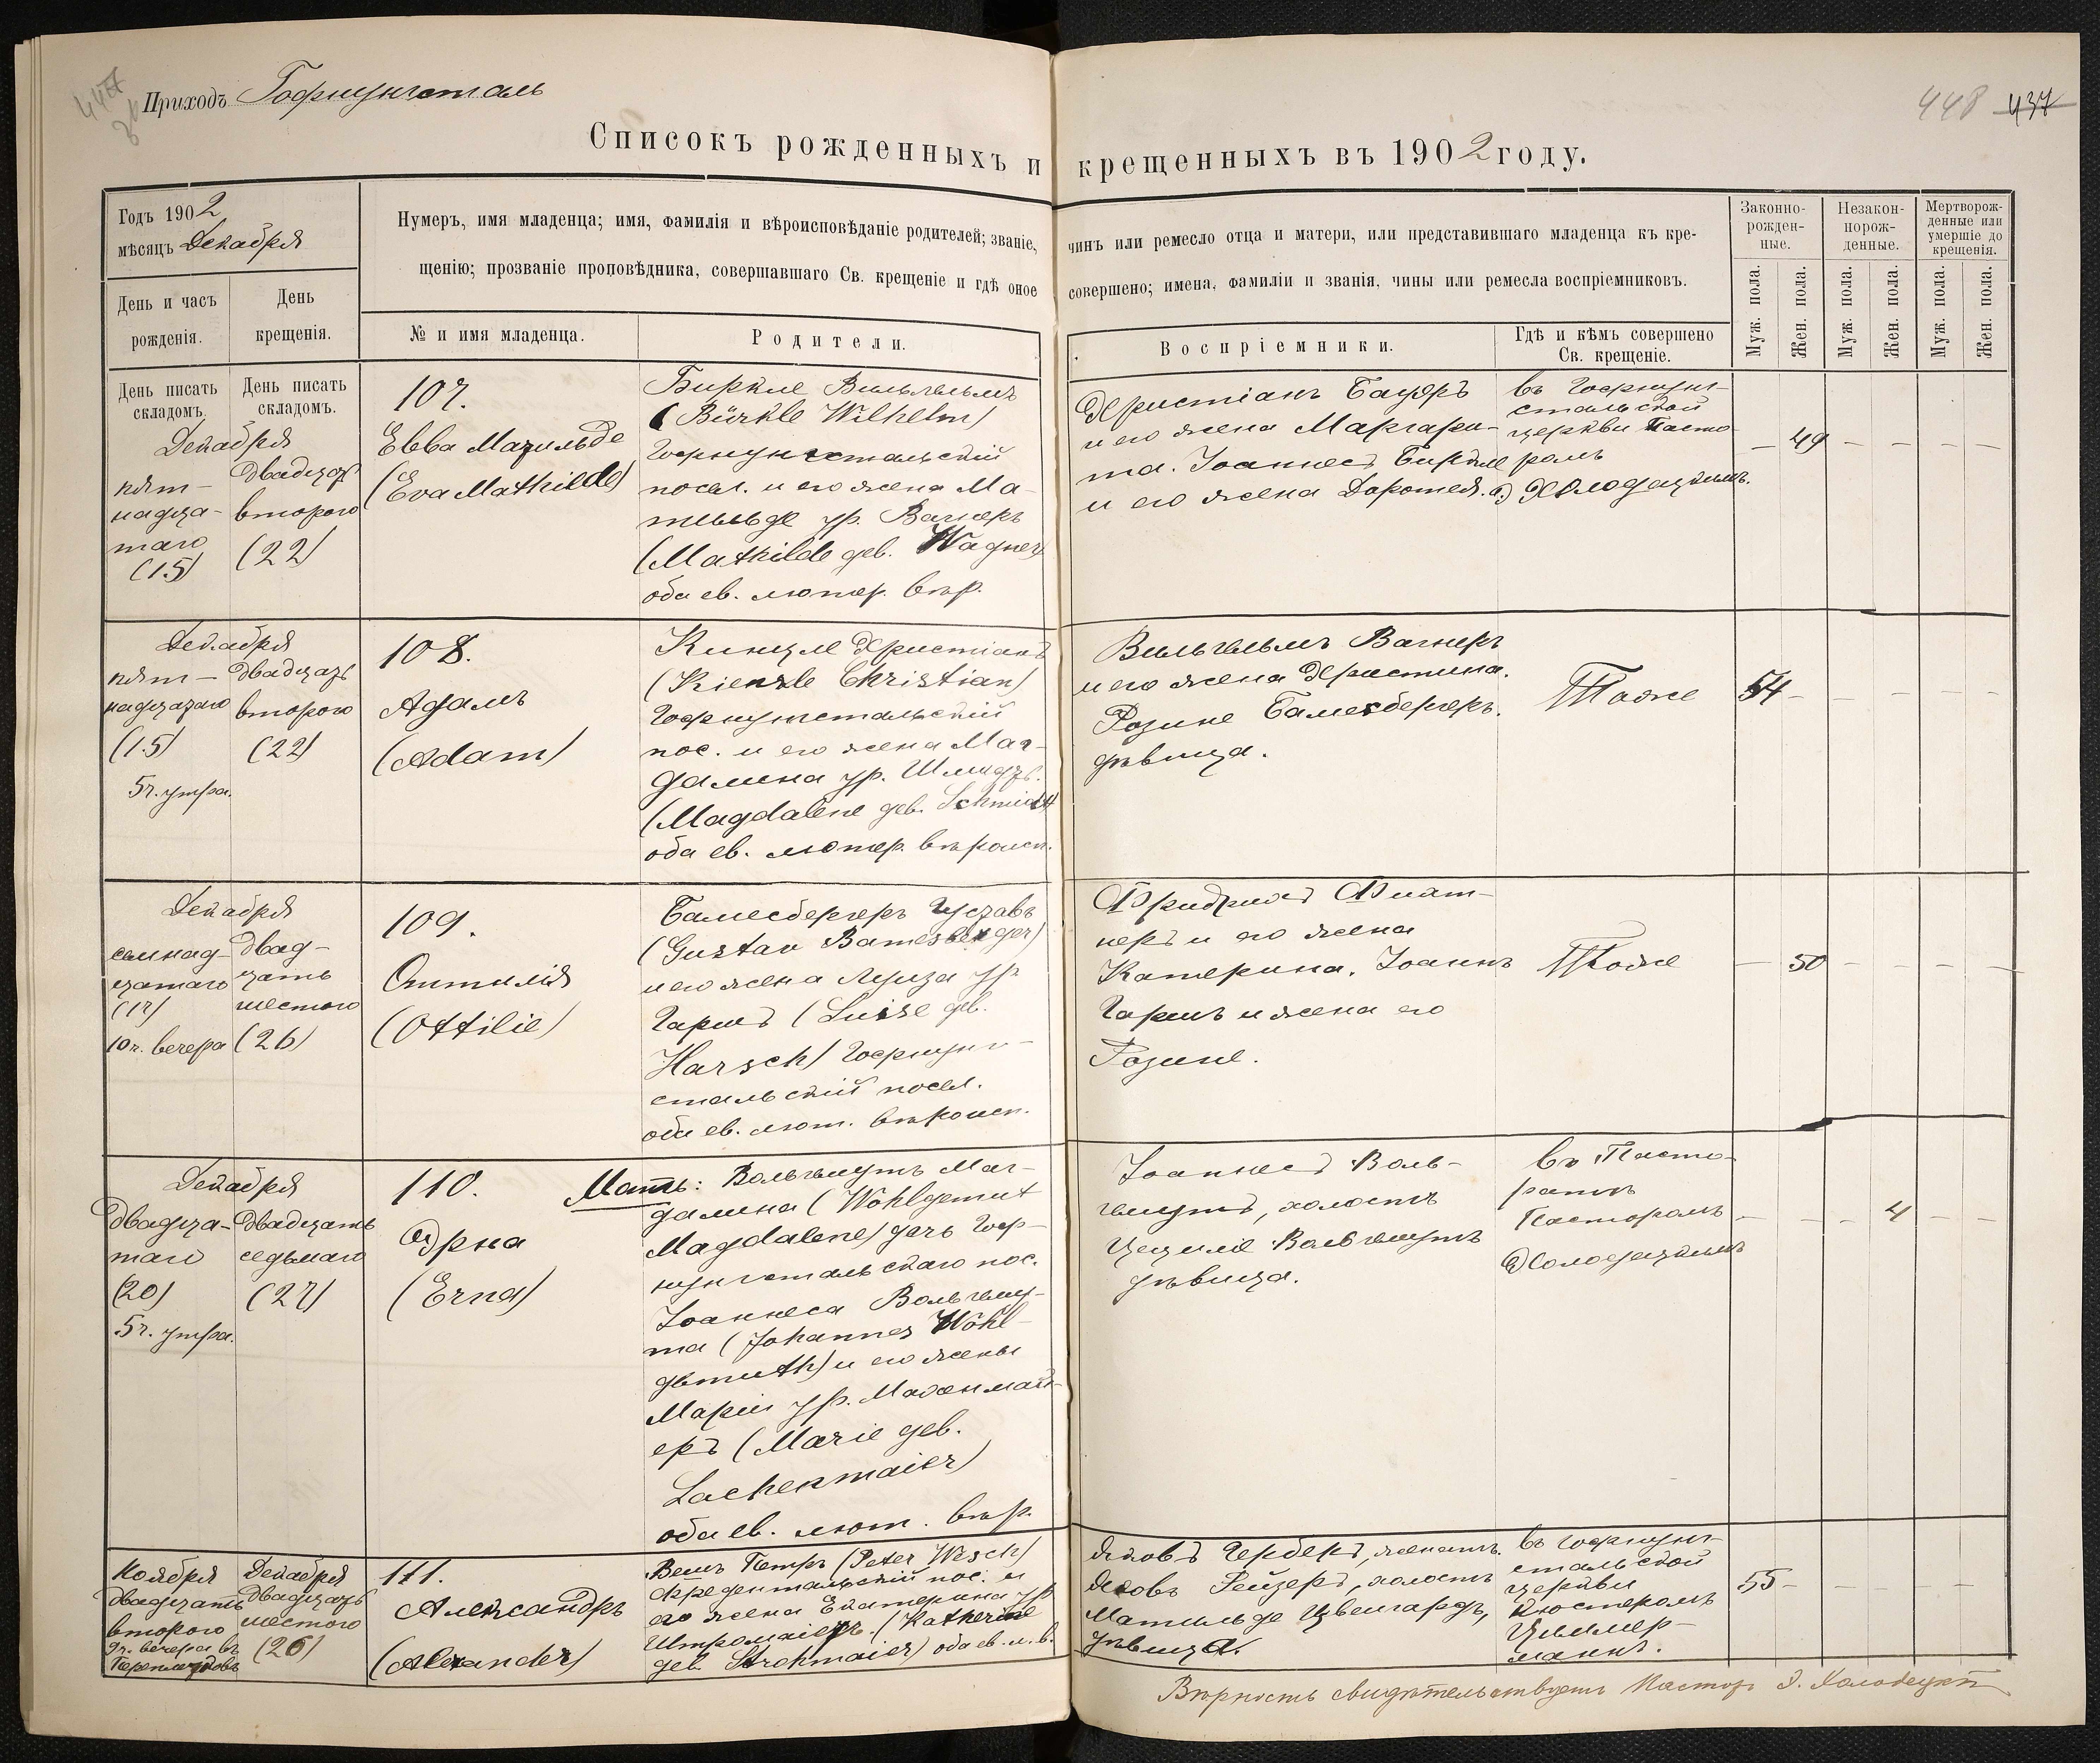 447
Приходъ Гофнунгсталь
448 437
Списокъ рожденныхъ и крещенныхъ въ 1902 году.
Годъ 1902
мѣсяцъ Декабря
День и часъ рожденія.
День крещенія.
Нумеръ, имя младенца; имя, фамилія и вѣроисповѣданіе родителей; званіе, чинъ или ремесло отца и матери, или представившаго младенца къ кре-
щенію; прозваніе проповѣдника, совершавшаго Св. крещеніе и гдѣ оное совершено; имена, фамиліи и званія, чины или ремесла воспріемниковъ.
№ и имя младенца.
Родители.
Воспріемники.
Гдѣ и кѣмъ совершено
Св. крещеніе.
Законно-
рожден-
ные.
Незакон-
норож-
денные.
Мертворож-
денные или
умершіе до
крещенія.
Муж. пола.
Жен. пола.
Муж. пола.
Жен. пола.
Муж. пола.
Жен. пола.
День писать
складомъ.
День писать
складомъ.
Декабря
пят-
надца-
таго
(15)
двадцать
второго
(22)
107.
Евва Матильде
(Eva Mathilde)
Биркле Вильгельмъ
(Bürkle Wilhelm)
Гофнунгстальскій
посел. и его жена Ма-
тильде ур. Вагнеръ
(Mathilde geb. Wagner)
оба ев. лютер. вѣр.
Христіанъ Бауеръ
и его жена Маргари-
та. Іоаннесъ Биркле
и его жена Доротея.
въ Гофнунг-
стальской
церкви Пасто-
ромъ
Э. Холодецкимъ.
— 49 — — — —
Декабря
пят-
надцатаго
(15)
5 ч. утра.
двадцать
второго
(22)
108.
Адамъ
(Adam)
Кинцле Христіанъ
(Kienzle Christian)
Гофнунгстальскій
пос. и его жена Маг-
далина ур. Шмидтъ.
(Magdalene geb. Schmidt)
оба ев. лютер. вѣроисп.
Вильгельмъ Вагнеръ
и его жена Христина.
Розине Бамесбергеръ.
дѣвица.
Тоже
54 — — — — —
Декабря
семнад-
цатаго
(17)
10 ч. вечера
двад-
цать
шестого
(26)
109.
Оттилія
(Ottilie)
Бамесбергеръ Густавъ
(Gustav Bamesberger)
и его жена Луиза ур.
Гаршъ (Luise geb.
Harsch) Гофнунг-
стальскій посел.
оба ев. лют. вѣроисп.
Фридрихъ Фиат-
неръ и его жена
Катерина. Іоаннъ
Гаршъ и жена его
Розине.
Тоже
— 50 — — — —
Декабря
двадца-
таго
(20)
5 ч. утра.
двадцать
седьмаго
(27)
110.
Эрна
(Erna)
Мать: Вольгемутъ Маг-
далина (Wohlgemut
Magdalene) дочь Гоф-
нунгстальскаго пос.
Іоаннеса Вольгему-
та (Johannes Wohl-
gemuth) и его жены
Маріи ур. Лахенмай-
еръ (Marie geb.
Lachenmaier)
оба ев. лют. вѣр.
Іоаннесъ Воль-
гемутъ, холостъ
Цециліе Вольгемутъ
дѣвица.
въ Пасто-
ратѣ
Пасторомъ
Холодецкимъ
— — — 4 — —
Ноября
двадцать
второго
9 ч. вечера въ
Декабря
двадцать
шестого
(26)
111.
Александръ
(Alexander)
Вешъ Петръ (Peter Wesch)
Фреденстальскій пос. и
его жена Екатерина ур.
Штромаіеръ. (Katherine
geb. Strohmaier) оба ев. л. в.
Яковъ Герберъ, женатъ.
Яковъ Рейзеръ, холостъ
Матильде Цвейгардъ,
дѣвица.
въ Гофнунг-
стальской
церкви
Кюстеромъ
Циммер-
манъ.
55 — — — — —
Вѣрность свидѣтельствуетъ Пасторъ Э. Холодецкій